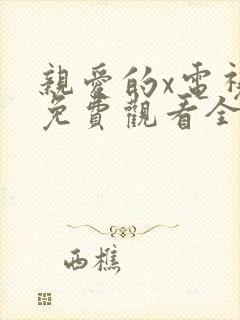 親愛的x電視
免費觀看全
西樵